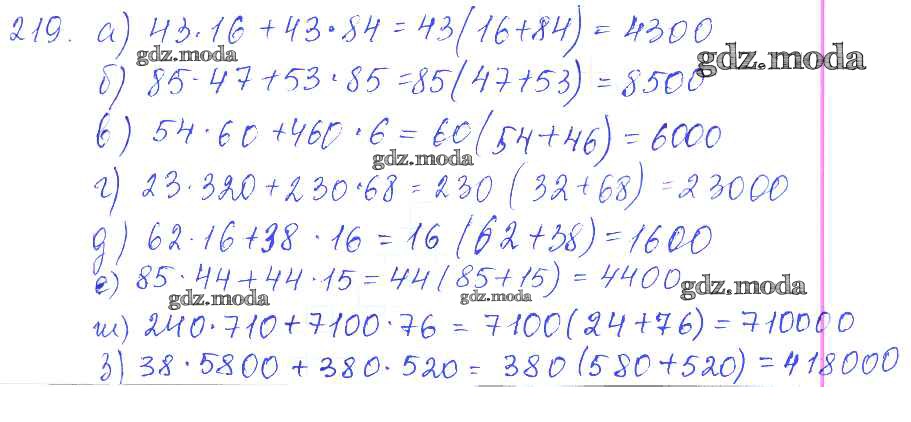 219. а) 43·16 + 43·84 = 43(16+84) = 4300
gdz.moda
gdz.moda
б) 85·47+53·85 =85(47+53) = 8500
в) 54·60 +460·6 = 60(54+46) = 6000
gdz.moda
г) 23·320+230·68 = 230 (32+68) =23000
д) 62·16+38·16 = 16 (62+38)=1600
е) 85·44+44·15 = 44(85+15) = 4400
gdz.moda
gdz.moda
gdz.moda
ж) 240·710+7100·76 = 7100(24+76) = 710000
з) 38·5800 + 380·520 = 380 (580+520) = 418000